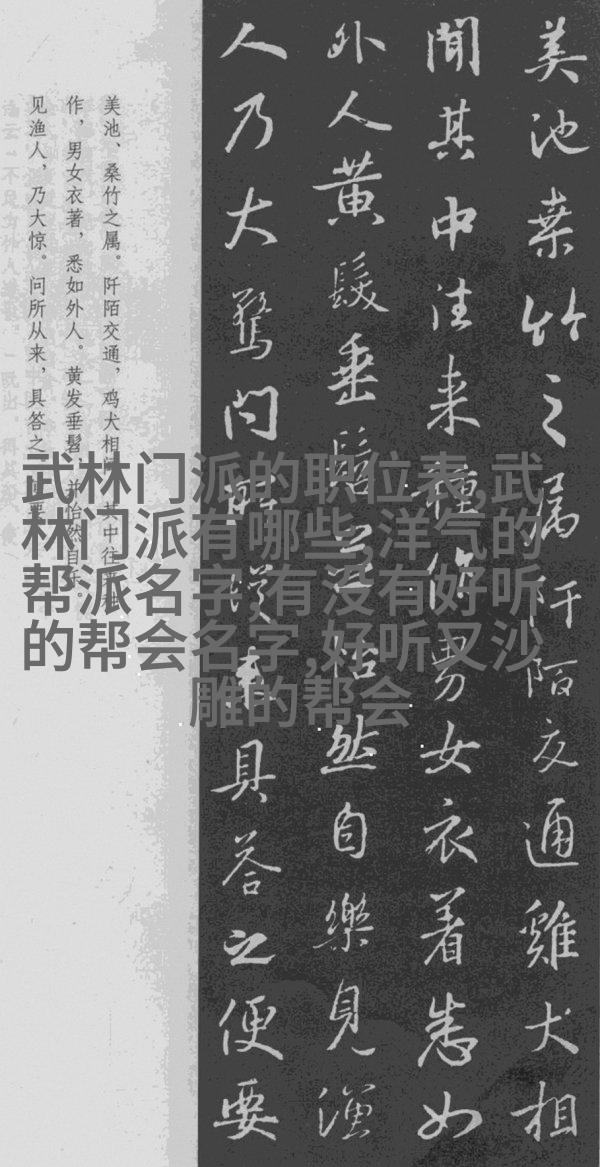 美池桑竹之属阡陌交通雞犬相
聞其中往来種作男女衣着悉如
外人黄髮垂髫并怡然自樂見漁
人乃大驚问所従来具荅之便要
美池、桑竹之属。阡陌交通，鸡犬相
中往
作，男女衣著，悉如外人。黄发垂髫，并怡然自乐。
见渔人，乃大惊。问所从来，具答之
要
武林门派的职位表,武
林门派有哪些,洋气的
帮派名字,有没有好听
的帮会名字,好听又沙
雕的帮会